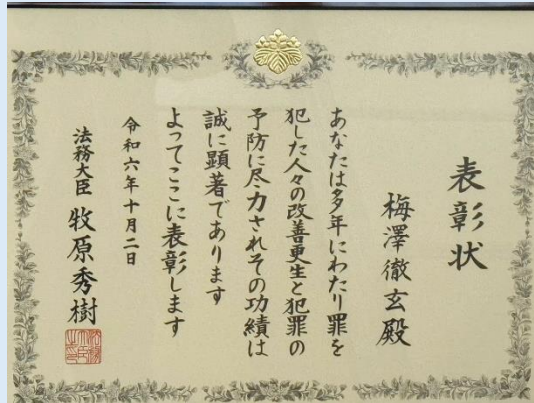 表彰状
梅澤徹玄殿
あなたは多年にわたり罪を
犯した人々の改善更生と犯罪の
予防に尽力されその功績は
誠に顕著であります
よってここに表彰します
令和六年十月二日
法務大臣 牧原秀樹